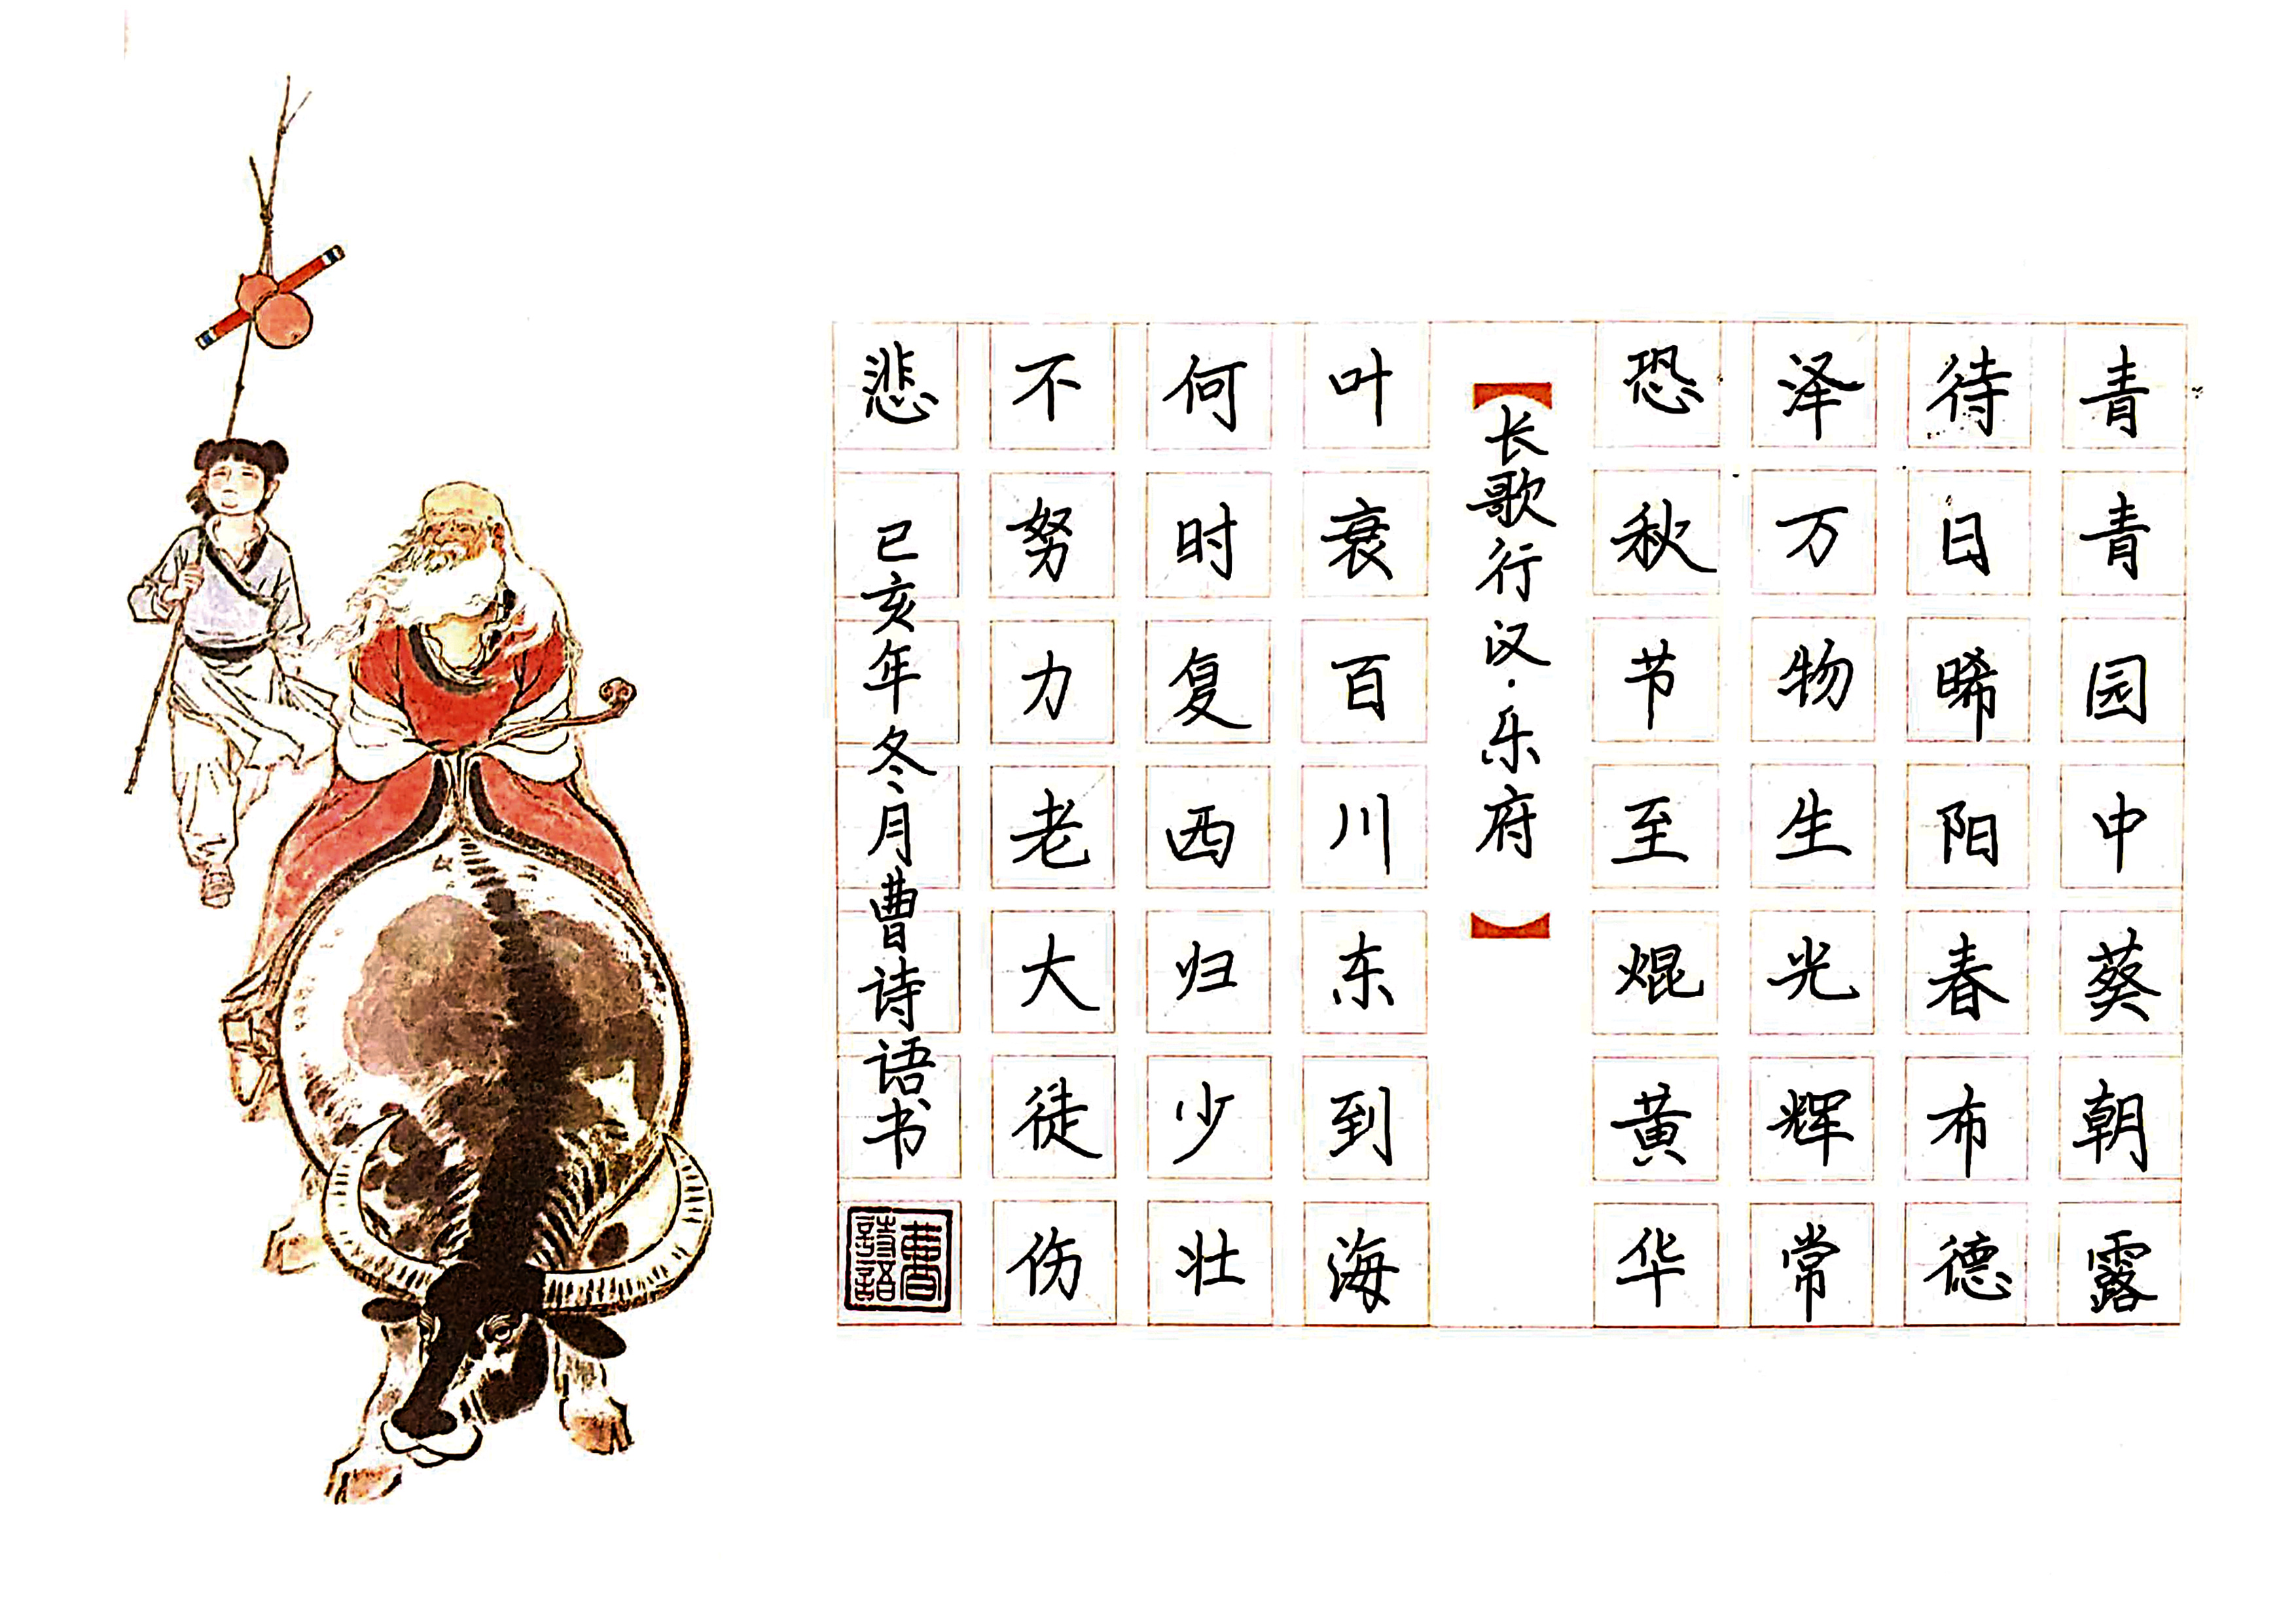 青青园中葵朝露
待日晞阳春布德
泽万物生光辉常
恐秋节至焜黄华
长歌行汉·乐府
叶衰百川东到海
何时复西归少壮
不努力老大徒伤
悲
己亥年冬月曹诗语书
曹詩語